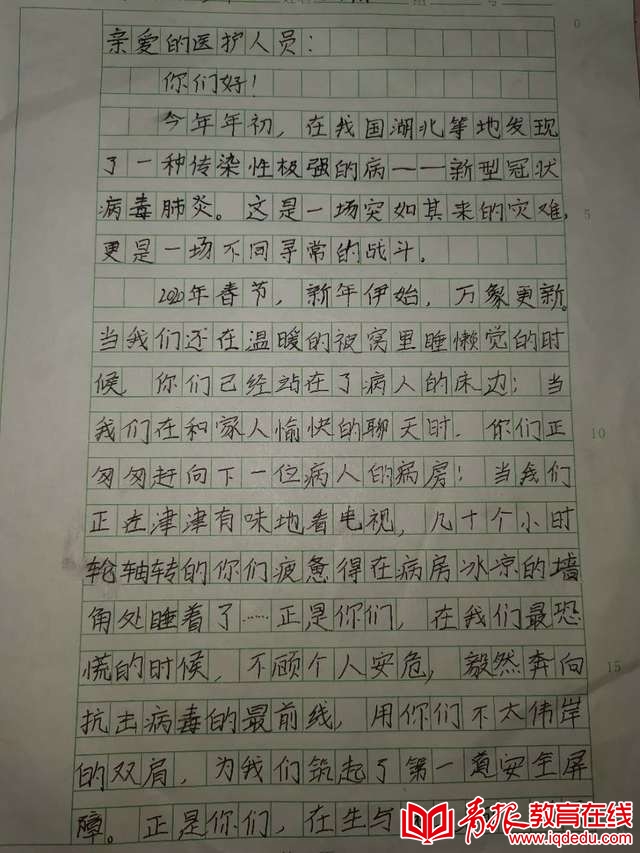 亲爱的医护人员：
你们好！
今年年初，在我国湖北等地发现
了一种传染性极强的病——新型冠状
病毒肺炎。这是一场突如其来的灾难，
更是一场不同寻常的战斗。
2020年春节，新年伊始，万象更新。
当我们还在温暖的被窝里睡懒觉的时
候，你们已经站在了病人的床边；当
我们在和家人愉快的聊天时，你们正
匆匆赶向下一位病人的病房；当我们
正在津津有味地看电视，几十个小时
轮轴转的你们疲惫得在病房冰凉的墙
角处睡着了……正是你们，在我们最恐
慌的时候，不顾个人安危，毅然奔向
抗击病毒的最前线，用你们不太伟岸
的双肩，为我们筑起了第一道安全屏
障。正是你们，在生与
0
5
10
15
青报教育在线
www.iqdedu.com